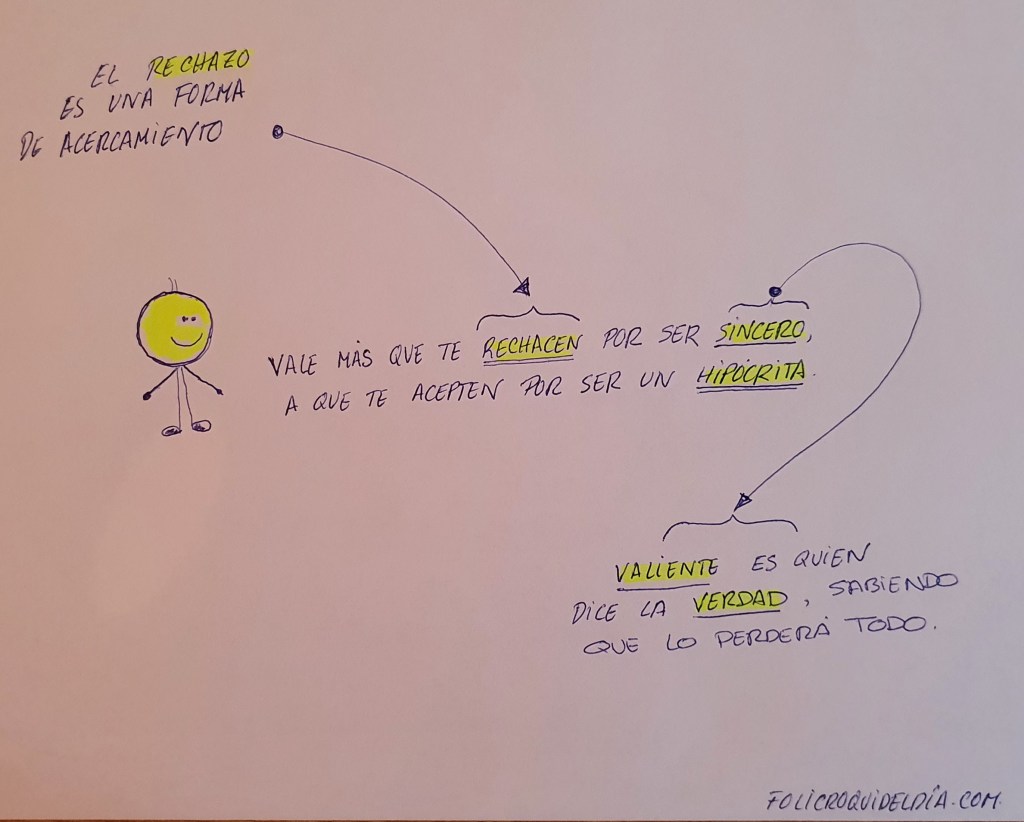 EL RECHAZO
ES UNA FORMA
DE ACERCAMIENTO
VALE MÁS QUE TE RECHACEN POR SER SINCERO,
A QUE TE ACEPTEN POR SER UN HIPÓCRITA.
VALIENTE ES QUIEN
DICE LA VERDAD, SABIENDO
QUE LO PERDERÁ TODO.
FOLICROQUIDELDÍA.COM